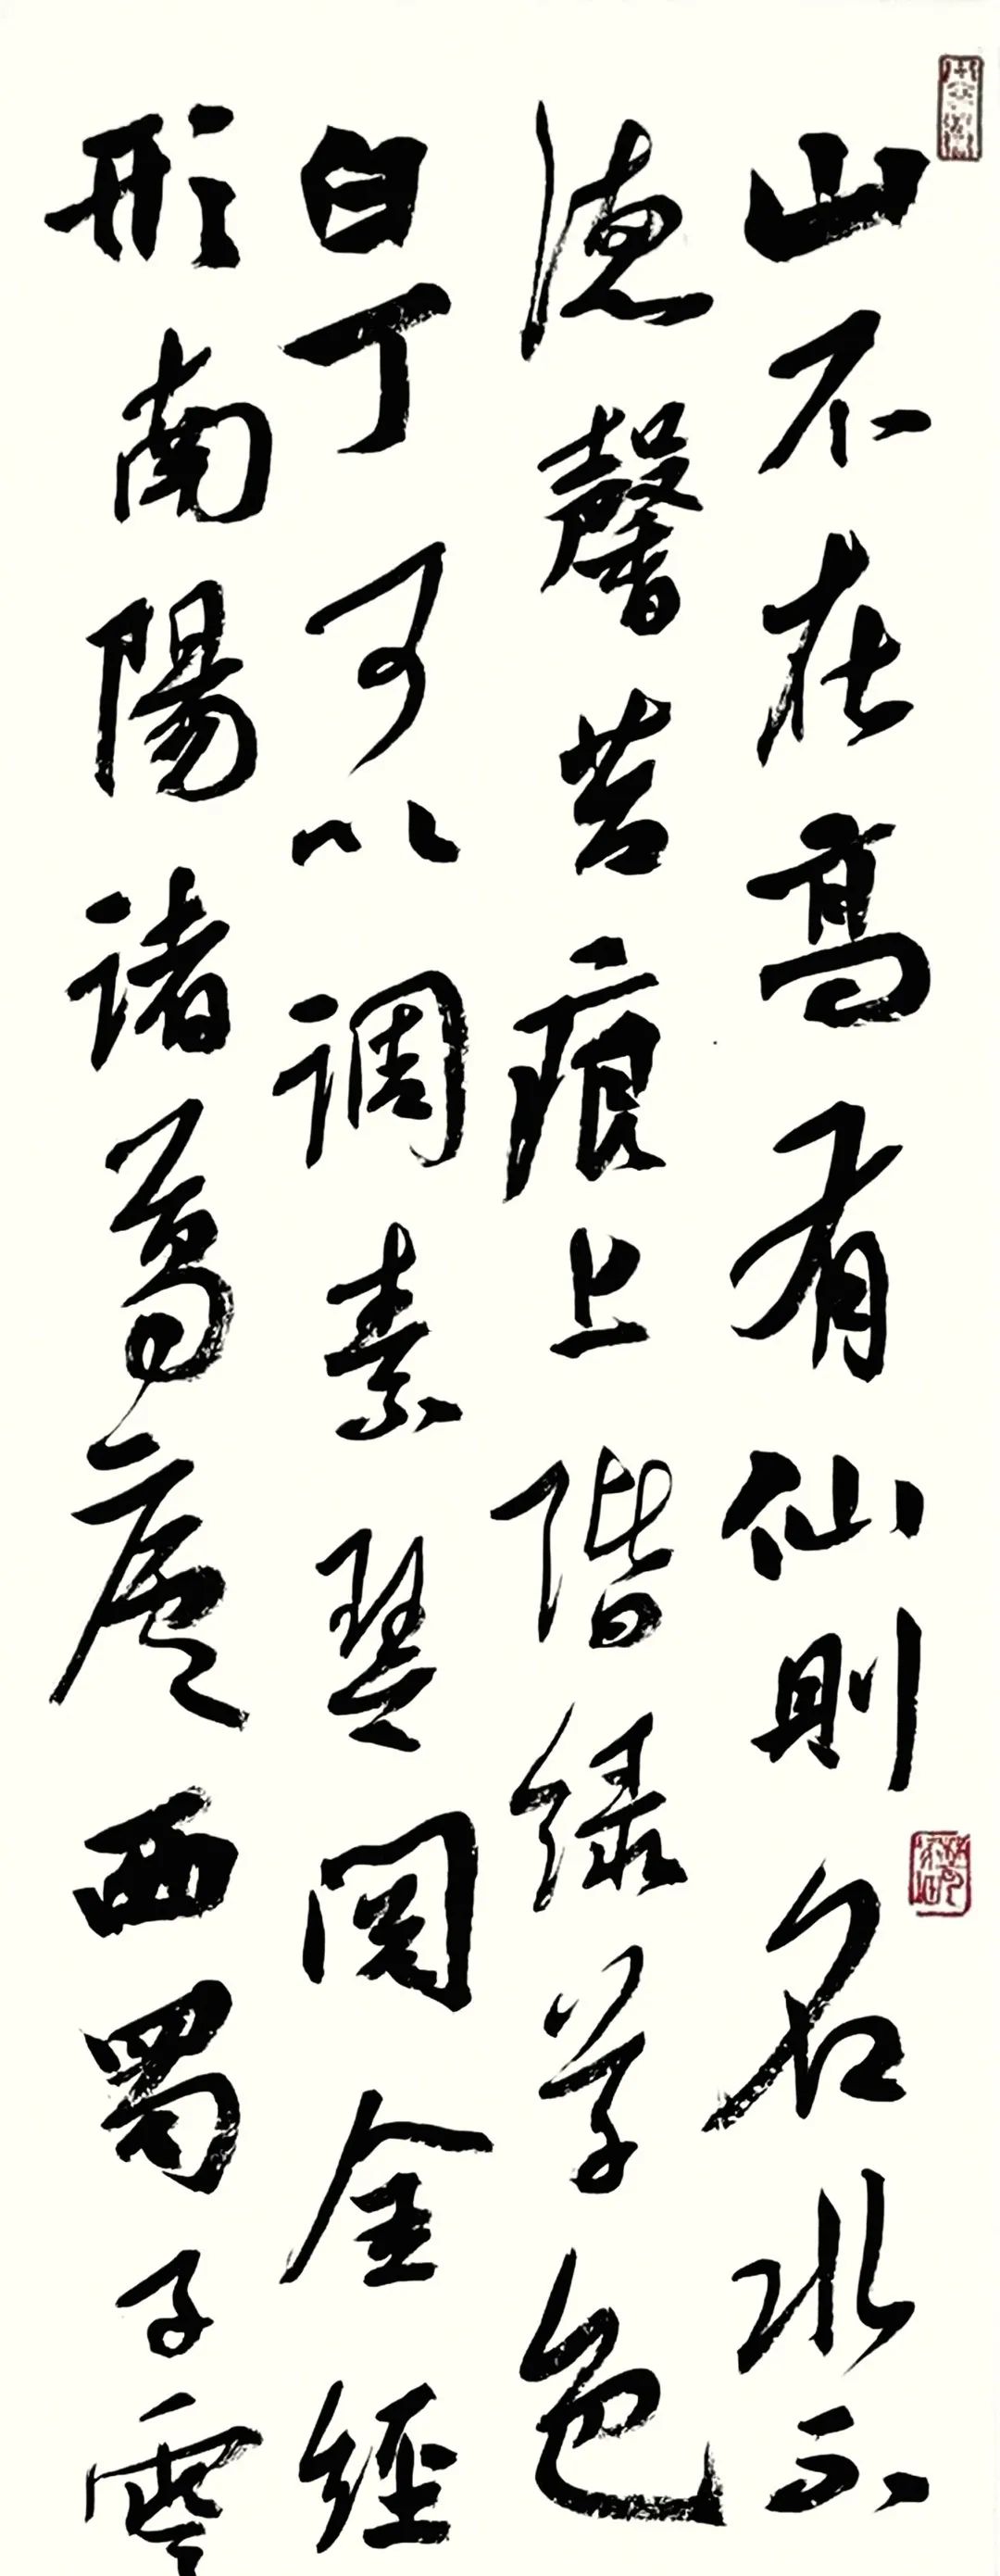 山不在高有仙則名水不
德馨苔痕上階緑草色
白丁可以调素琴閲金經
形南陽诸葛廬西蜀子雲